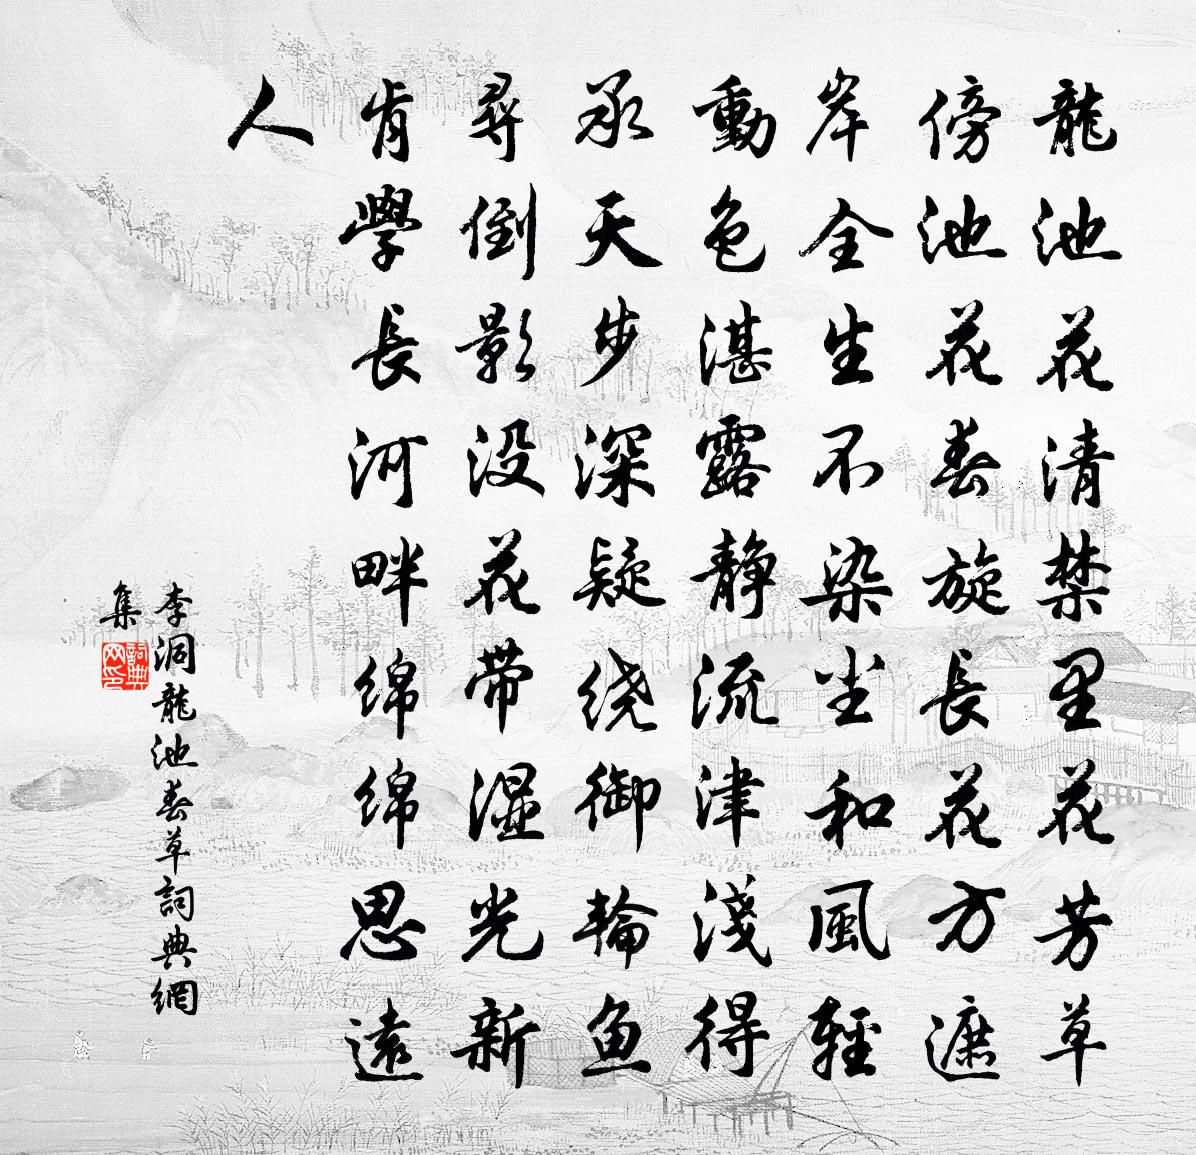 龍池花清禁里花芳草
傍池花春旋長花方遮
岸全生不染尘和風輕
動色湛露静流津淺得
承天步深疑绕御輪鱼
尋倒影没花带湿光新
肯學長河畔绵绵思遠
人
李洞龍池春草詞典網
集
詞典
网印